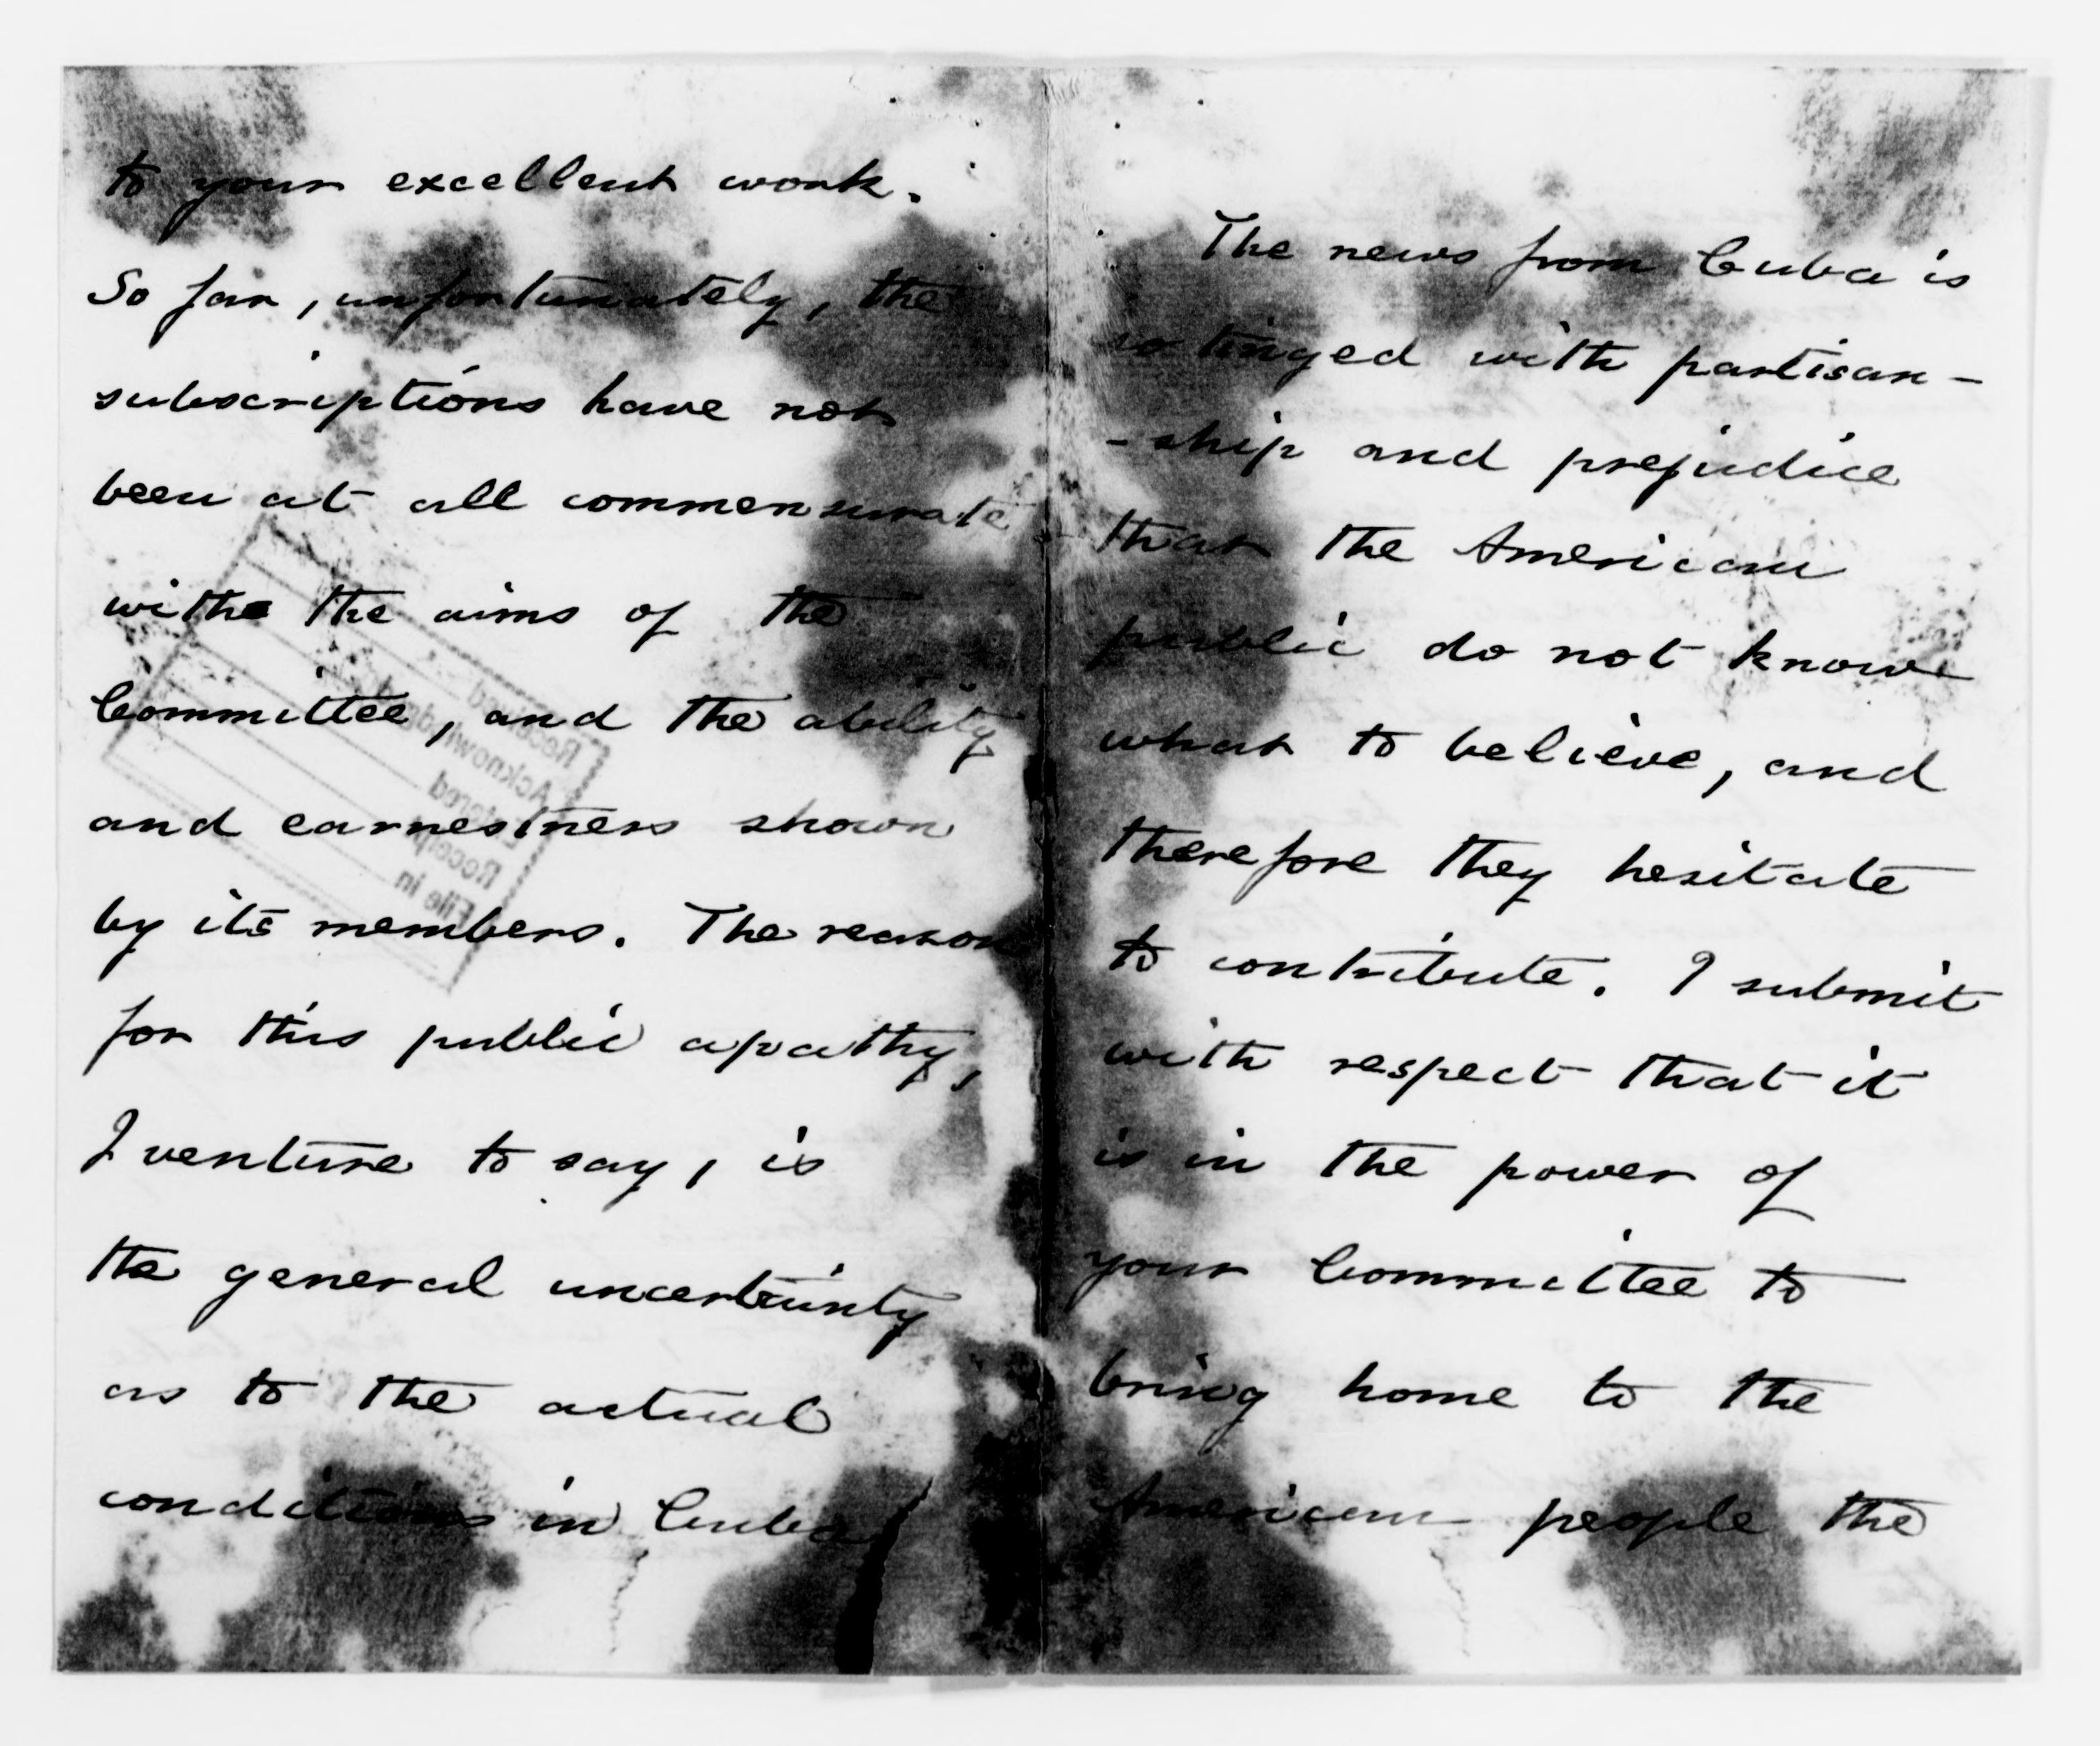 to your excellent work.
So far, unfortunately, the
subscriptions have not
been at all commensurate
withe the aims of the
Committee, and the ability
and earnestness shown
by its members. The reason
for this public apathy,
I venture to say, is
the general uncertainty
as to the actual
conditions in Cuba
The news from Cuba is
so tinged with partisan-
-ship and prejudice
that the American
public do not know
what to believe, and
therefore they hesitate
to contribute. I submit
with respect that it
is in the power of
your Committee to
bring home to the
American people the
Received
Acknowledged
Entered
Receipt
File in